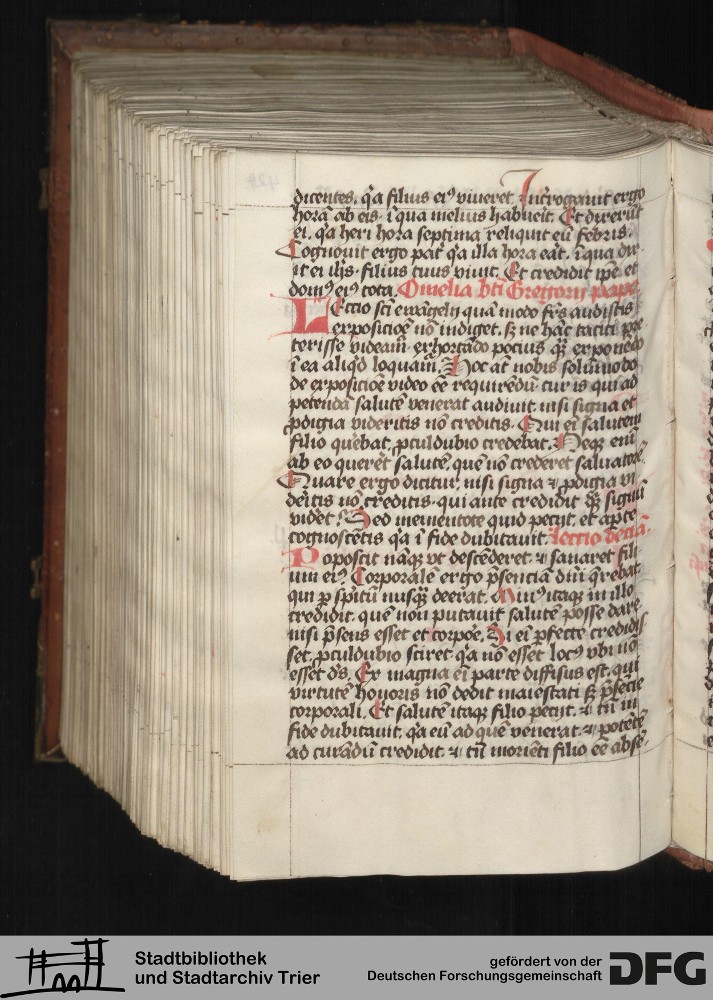 dicentes. q̄a filius ei⁹ viueret Int̓rogauit ergo
horā ab eis. ī qua melius habueīt. Et dixer̄ūt
ei. q̄a heri hora septima reliquit eū febris.
Cognouit ergo pat̓ q̄a illa hora eāt. ī qua dix-
it ei ih̄s. filius tuus viuit. Et credidit ip̄e et
dom⁹ ei⁹ tota. Omelia bt̄i Gregorij pape
Lectio sc̄i ewāgelij quā modo fr̄s audistis
exposicōe nō indiget. sꝫ ne hāc taciti pre
terisse videam̄. exhortādo pocius qꝫ exponēdo
ī ea aliq̄d loquam̄. Hoc aūt nobis solūmodo
de exposicōe video eē requirēdū cur is qui ad
petendā salutē venerat audiuit. nisi signa et
ꝓdigia videritis nō creditis. Qui eī salutem
filio quēbat. ꝓculdubio credebat. Neqꝫ enī
ab eo querēt salutē. quē nō crederet saluatorē.
Quare ergo dicitur. nisi signa ⁊ ꝓdigia vi
deītis nō creditis. qui ante credidit qꝫ signū
vidēt. Sed mementote quid pecijt. et ap̄te
cognoscētis q̄a ī fide dubitauit. Lectio decīa.
Poposcit nāqꝫ vt descēderet. ⁊ sanaret fili-
um ei⁹. Corporalē ergo p̄senciā dn̄i q̄rebat
qui ꝑ sp̄itū nusqꝫ deerat. Min⁹ itaqꝫ in illo
credidit. quē non putauit salutē posse dare
nisi p̄sens esset et corpoē. Si eī ꝑfecte credidis
set. ꝓculdubio sciret. q̄a nō esset loc⁹ vbi nō
esset ds̄. Ex magna eī parte diffisus est. qui
virtutē honoris nō dedit maiestati sꝫ p̄sēcie
corporali. Et salutē itaqꝫ filio pecijt. ⁊ tn̄ in
fide dubitauit. q̄a eū ad quē venerat. ⁊ potētē
ad curādū credidit. ⁊ tn̄ moriēti filio eē abse-
Stadtbibliothek
und Stadtarchiv Trier
gefördert von der
Deutschen Forschungsgemeinschaft
DFG